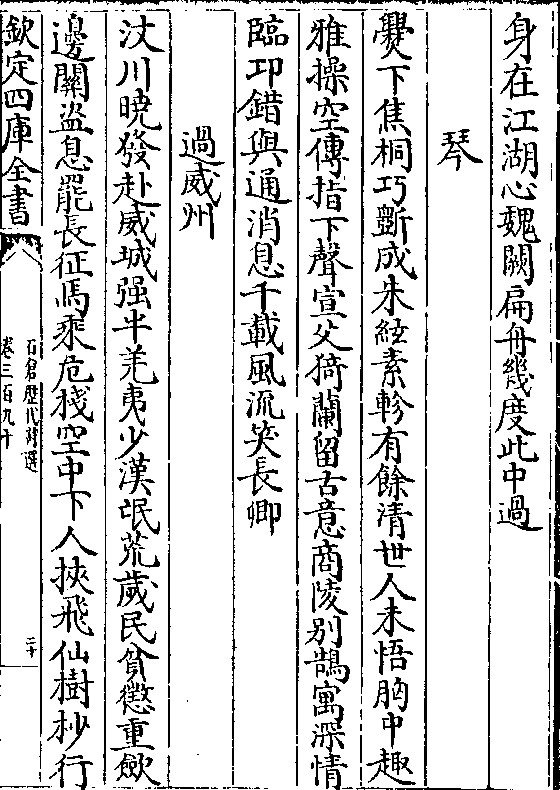 身在江湖心魏闕扁舟幾度此中過
琴
爨下焦桐巧斵成朱絃素軫有餘清世人未悟胸中趣
雅操空傳指下聲宣父猗蘭留古意商陵别鵠寓深情
臨卭錯與通消息千載風流笑長卿
過威州
汶川曉發赴威城强半羌夷少漢氓荒歲民貧懲重歛
邊關盜息罷長征馬乘危棧空中下人挾飛仙樹杪行
欽定四庫全書
石倉歷代詩選
卷三百九十
三十